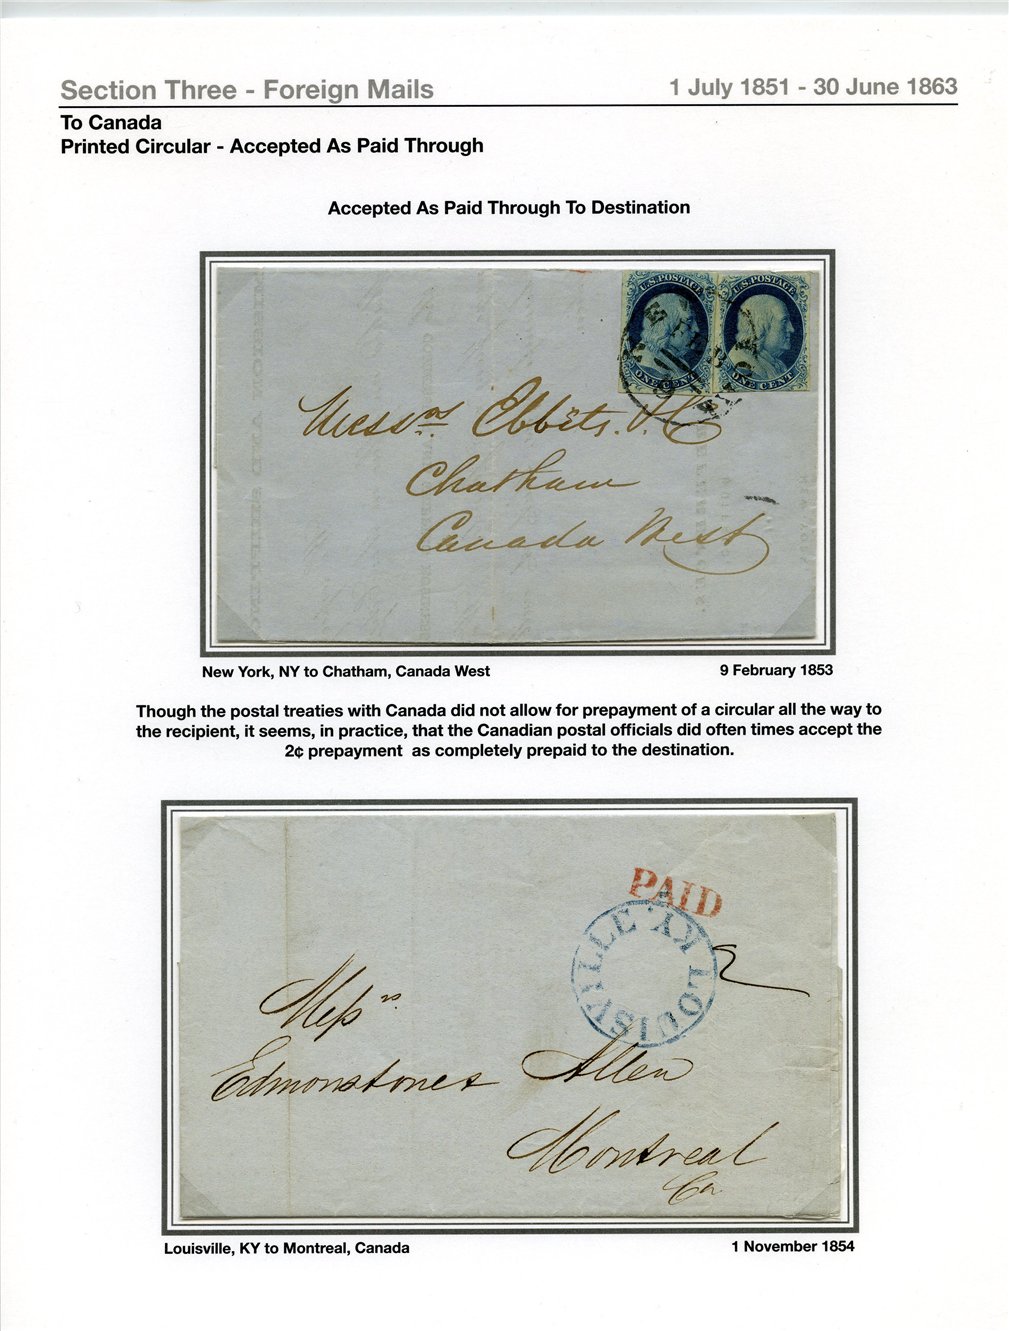 Section Three - Foreign Mails
1 July 1851 - 30 June 1863
To Canada
Printed Circular - Accepted As Paid Through
Accepted As Paid Through To Destination
U.S. POSTAGE
U.S. POSTAGE
ONE CENT
ONE CENT
Messrs Ebbets
Chatham
Canada West
New York, NY to Chatham, Canada West
9 February 1853
Though the postal treaties with Canada did not allow for prepayment of a circular all the way to
the recipient, it seems, in practice, that the Canadian postal officials did often times accept the
2¢ prepayment as completely prepaid to the destination.
PAID
LOUISVILLE KY.
2
Messrs
Edmonstones Allen
Montreal
Ca
Louisville, KY to Montreal, Canada
1 November 1854